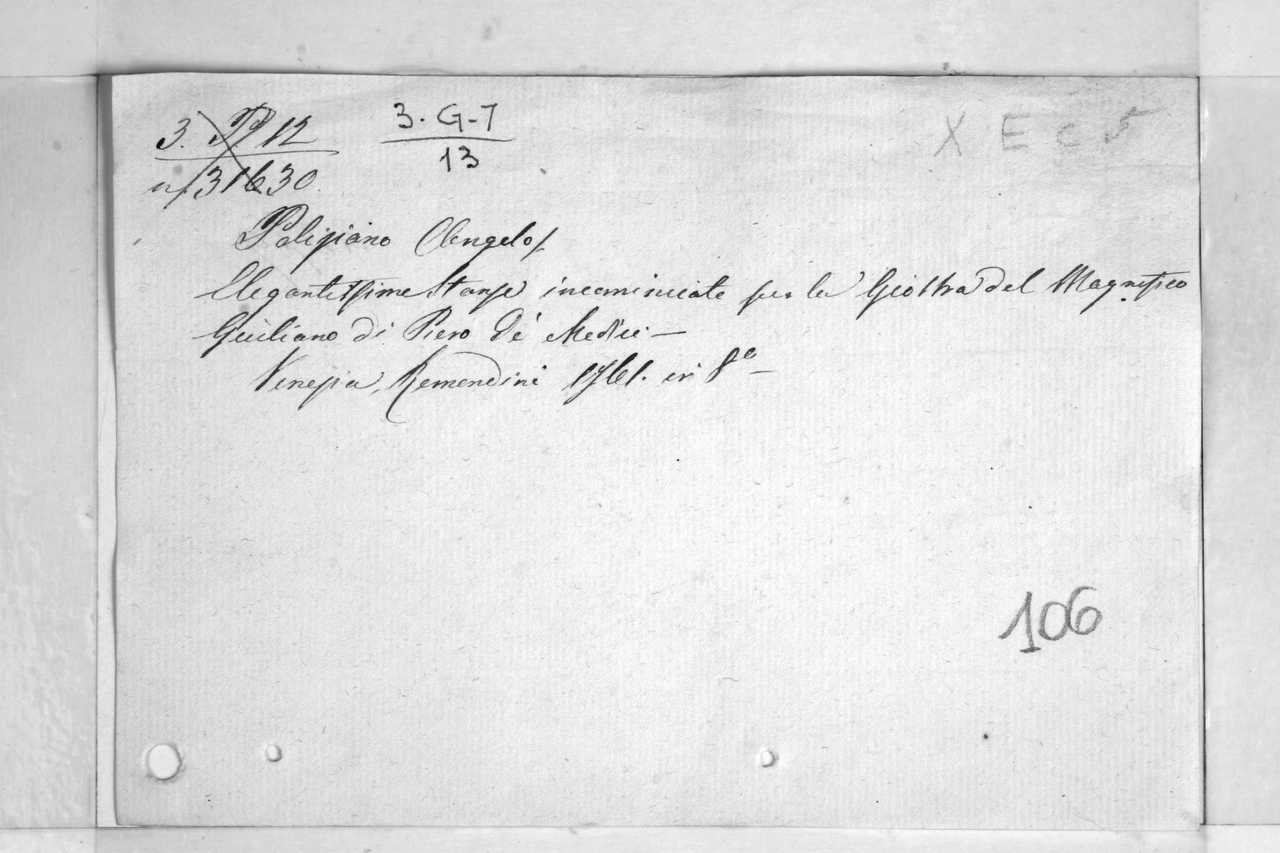 3. P 12
3. G-7
X E C 5
13
n/31630
Poliziano Angelo/
Elegantissime Stanze incominciate per la Giostra del Magnifico
Giuliano di Piero de' Medici —
Venezia, Remondini 1761. in 8º —
106